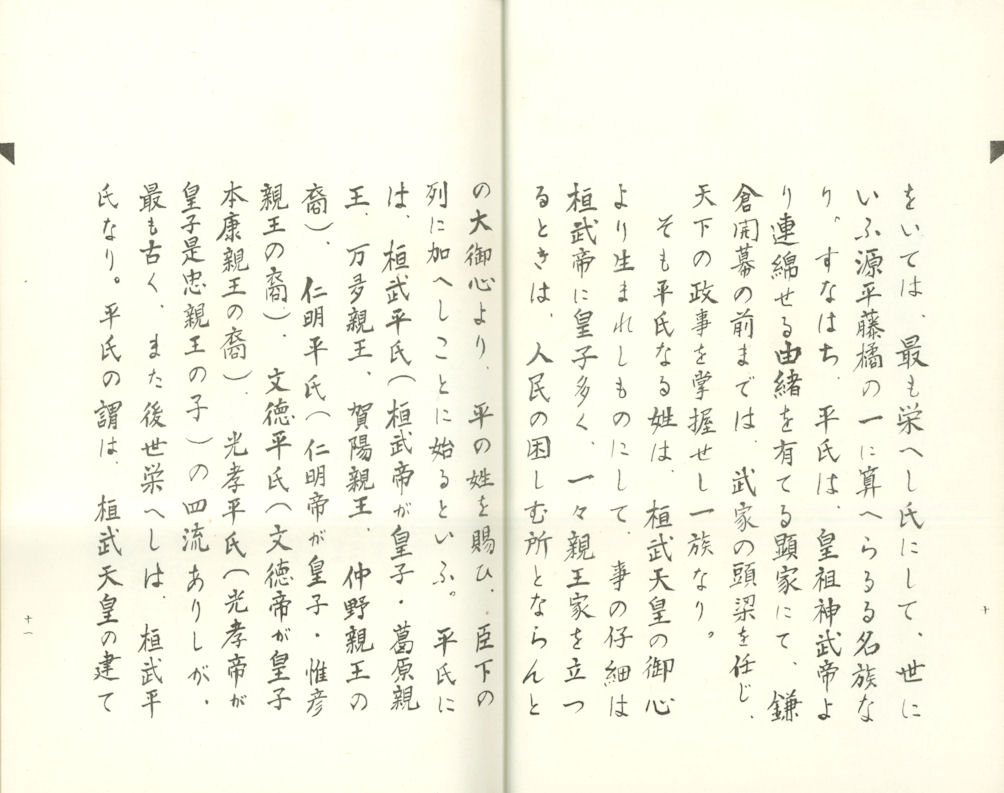 をいては、最も栄へし氏にして、世に
いふ源平藤橘の一に算へらるる名族な
り。すなはち、平氏は、皇祖神武帝よ
り連綿せる由緒を有てる顕家にて、鎌
倉開幕の前までは、武家の頭梁を任じ、
天下の政事を掌握せし一族なり。
そも平氏なる姓は、桓武天皇の御心
より生まれしものにして、事の仔細は
桓武帝に皇子多く、一々親王家を立つ
るときは、人民の困しむ所とならんと
十
の大御心より、平の姓を賜ひ、臣下の
列に加へしことに始るといふ。平氏に
は、桓武平氏(桓武帝が皇子・葛原親
王、万多親王、賀陽親王、仲野親王の
裔)、仁明平氏(仁明帝が皇子・惟彦
親王の裔)、文徳平氏(文徳帝が皇子
本康親王の裔)光孝平氏(光孝帝が
皇子是忠親王の子)の四流ありしが、
最も古く、また後世栄へしは、桓武平
氏なり。平氏の謂は、桓武天皇の建て
十一